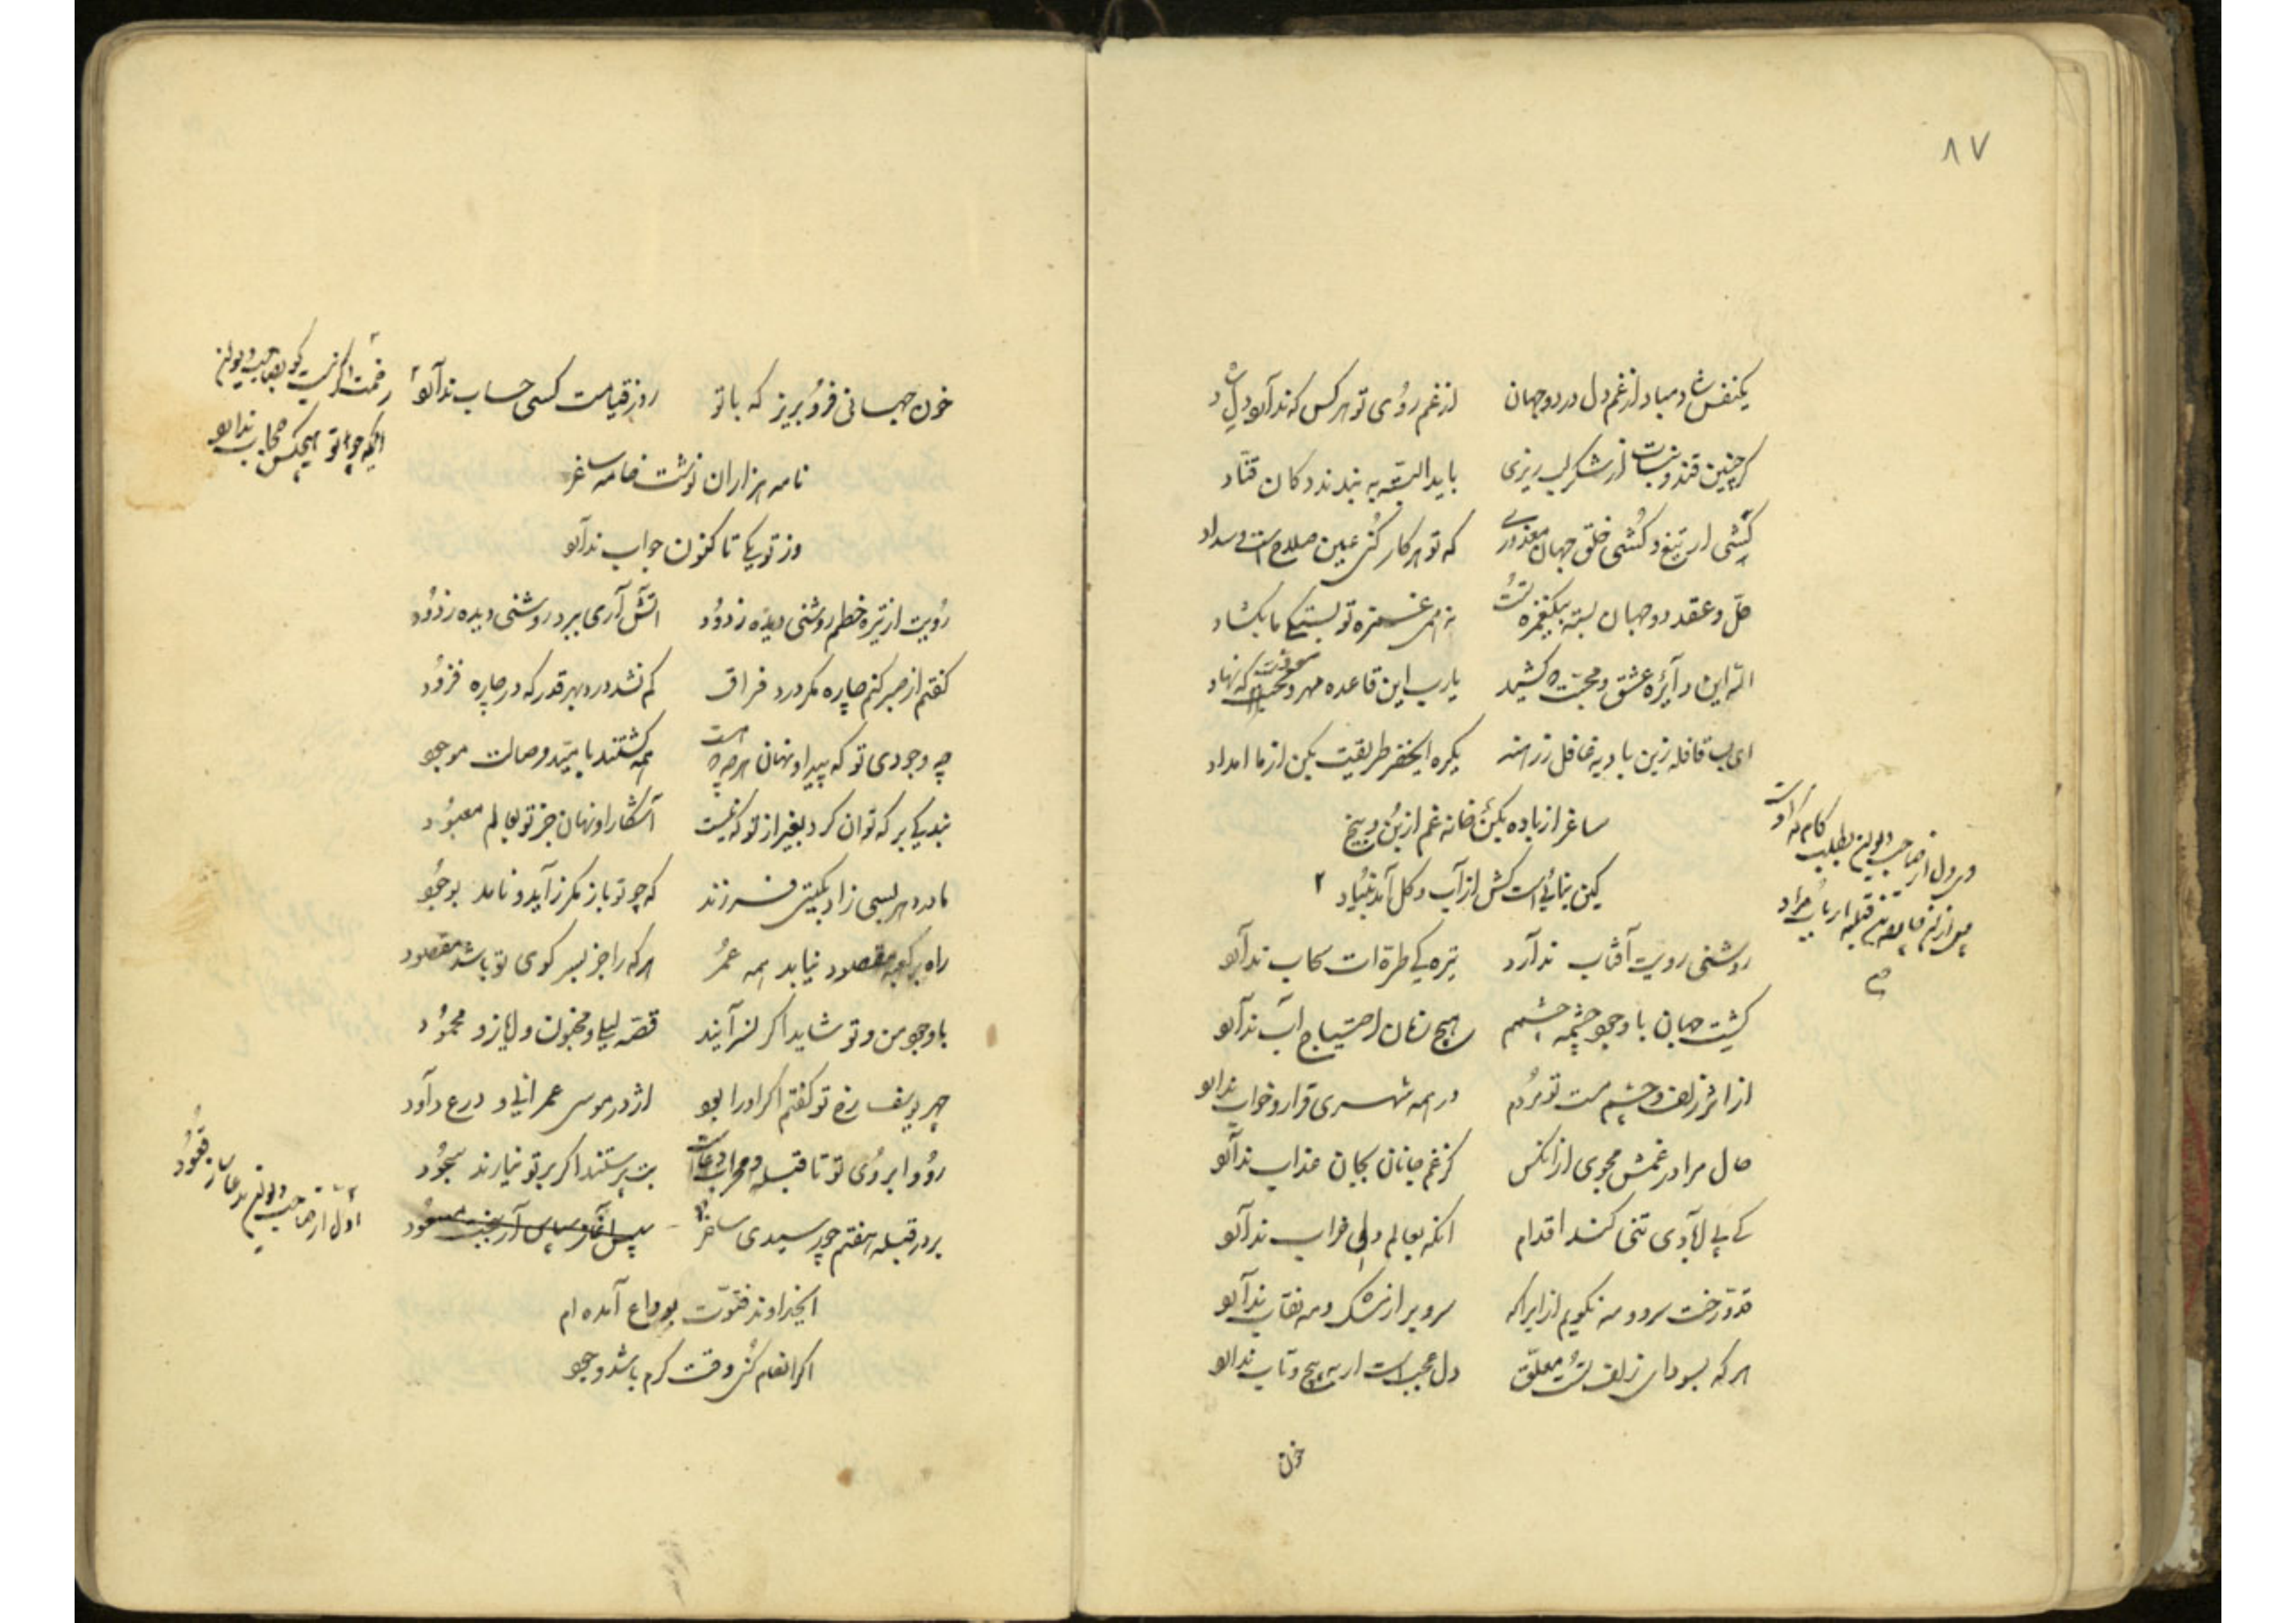 ۸۷
یکنفس شاد مباد از غم دل در دو جهان از غم روی تو هر کس که ندارد دل شاد
گر چنین قند و نبات از شکر لب ریزی باید البته به بندند دکان قناد
کشی ار تیغ و کشی خلق جهان معذوری که تو هر کار کنی عین صلاح است و سداد
حلّ و عقد دو جهان بسته بیکغمزه تست
الله این دآئره عشق و محبّت که کشید یا رب این قاعده مهر و که نهاد
ای بسا قافله زین بادیه غافل ز رهند یکره ایخضر طریقت بکن از ما امداد
ساغر از باده بکن خانه غم از بن و بیخ
کین بنائی است کش از آب و گل آمد بنیاد ۲
در دل از صاحب دیوان بطلب کام که اوست
قبله ارباب مراد
روشنی رویت آفتاب ندآرد تیره‌گی طره‌ات سحاب ندآرد
کشت جهان با وجود چشمه چشمم هیچ زمان احتیاج آب ندآرد
از اثر زلف و چشم مست تو مردم در همه شهر سری قرار و خواب ندارد
حال مرا در غمش مجوی از آنکس کز غم جانان بجان عذاب ندآرد
کی پی آبادی تنی کند اقدام آنکه بعالم دلی خراب ندآرد
قد و رخت سرو و مه نگویم از ایراکه سرو بر از مشک و مه نقاب ندآرد
هر که بسودای زلف تست معلّق دل عجب است ار به پیچ و تاب ندارد
خون
خون جهانی فرو بریز که با تو روز قیامت کسی حساب ندآرد
رخصت اگر نیست گو بصاحب دیوان
آنکه جز تو هیچکس حجاب ندارد
نامه هزاران نوشت خامه ساغر
وز تو یکی تا کنون جواب ندآرد
رویت از تیره خطم روشنی دیده زدود آتش آری ببرد روشنی دیده ز دود
گفتم از صبر کنم چاره مگر درد فراق کم نشد درد بهر قدر که در چاره فزود
چه وجودی تو که پیدا و نهان هر چه که هست همه گشتند بامّید وصالت موجود
بندگی بر که توان کرد بغیر از تو که نیست آشکارا و نهان جز تو بعالم معبود
مادر دهر بسی زاد بگیتی فرزند که چو تو باز مگر زآید و نامد بوجود
راه بر کعبه مقصود نیابد همه عمر هر که را جز بسر کوی تو باشد مقصود
با وجود من و تو شاید اگر نسرآیند قصّه لیلی و مجنون و ایاز و محمود
چهر یوسف رخ تو گفتم اگر او را بود اژدر موسی عمرانی و درع دآود
رو و ابروی تو تا قبله و محراب دعاست بت پرستند اگر بر تو نیارند سجود
بر در قبله هفتم چو رسیدی ساغر
اول از صاحب دیوان
ایخداوند فتوّت بوداع آمده‌ام
اگر انعام کنی وقت کرم باشد و جود